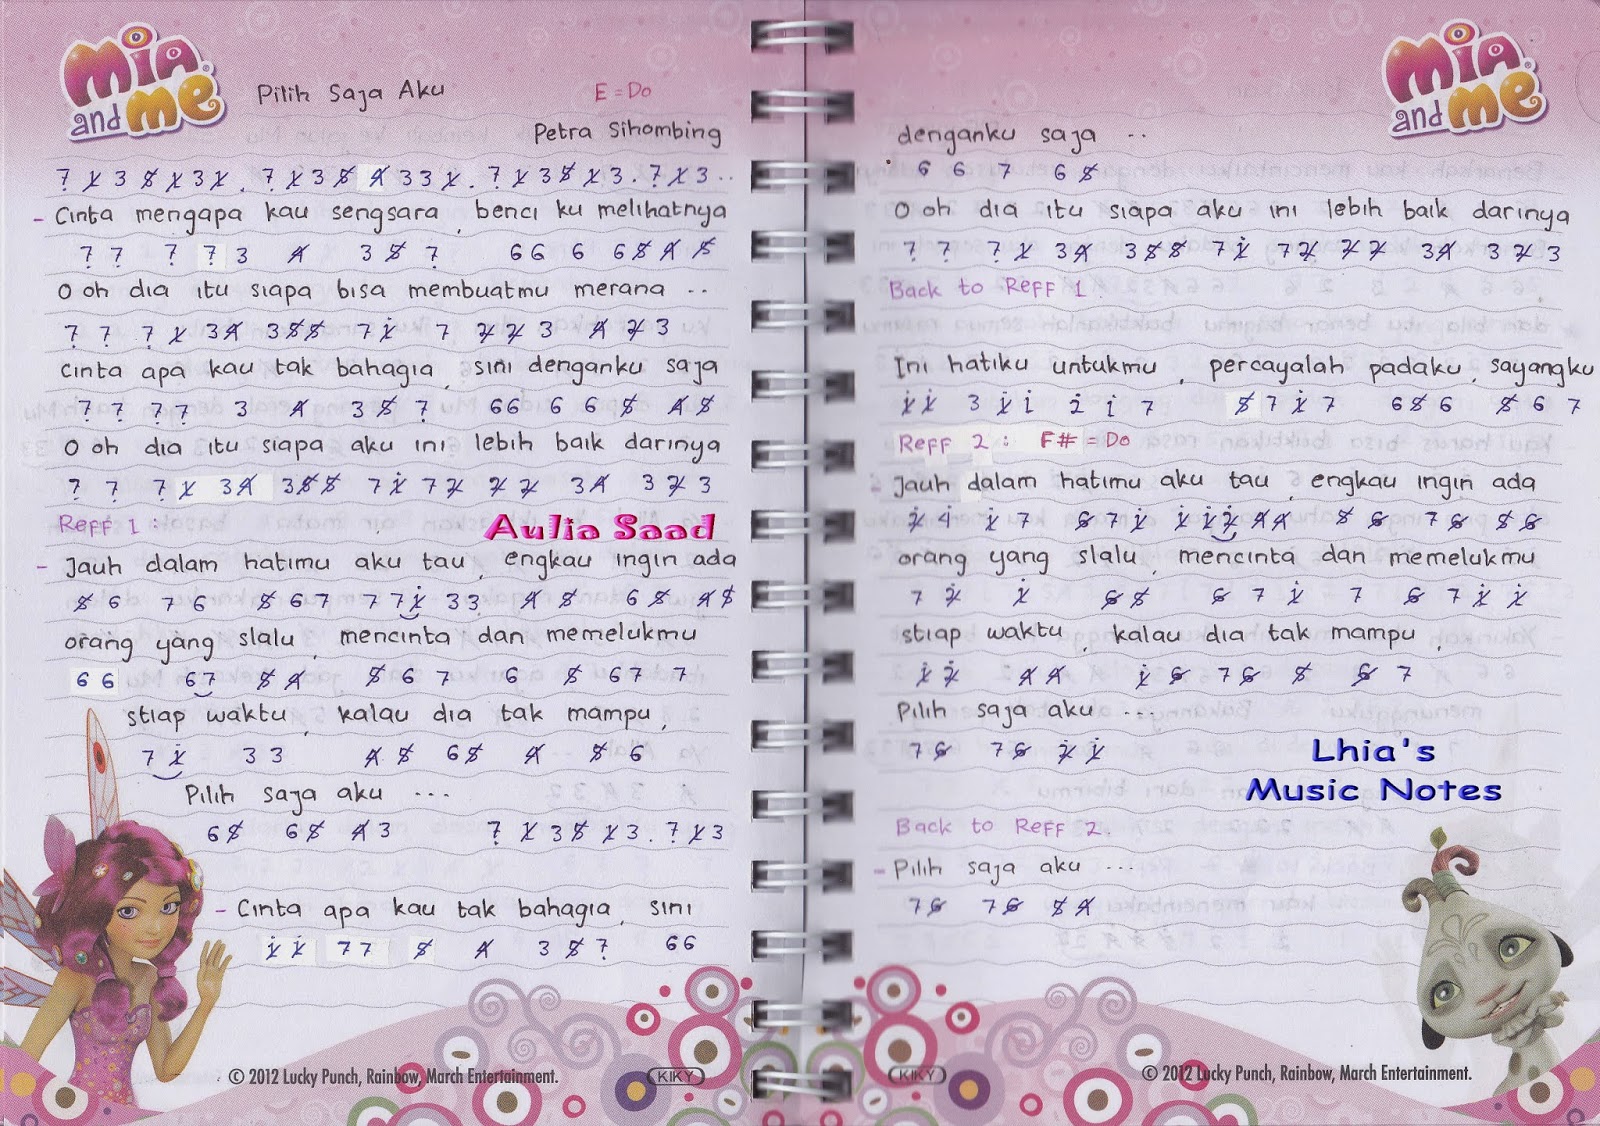 mia and me
Pilih Saja Aku E = Do
Petra Sihombing
7̣ 1̸ 3 5̸ 1̸ 3 1̸ . 7̣ 1̸ 3 5̸ 4̸ 3 3 1̸ . 7̣ 1̸ 3 5̸ 1̸ 3 . 7̣ 1̸ 3 ..
- Cinta mengapa kau sengsara, benci ku melihatnya
7̣ 7̣ 7̣ 7̣ 3 4̸ 3 5̸ 7̣ 6 6 6 6 5̸ 4̸ 5̸
O oh dia itu siapa bisa membuatmu merana ..
7̣ 7̣ 7̣ 1̸ 3 4̸ 3 5̸ 5̸ 7 1̸̇ 7 2̸ 2̸ 3 4̸ 2̸ 3
Cinta apa kau tak bahagia, sini denganku saja
7̣ 7̣ 7̣ 7̣ 3 4̸ 3 5̸ 7̣ 6 6 6 6 5̸ 4̸ 5̸
O oh dia itu siapa aku ini lebih baik darinya
7̣ 7̣ 7̣ 1̸ 3 4̸ 3 5̸ 5̸ 7 1̸̇ 7 2̸ 2̸ 2̸ 3 4̸ 3 2̸ 3
Reff 1 :
Aulia Saad
- Jauh dalam hatimu aku tau, engkau ingin ada
5̸ 6 7 6 5̸ 6 7 7 7 1̸̇ 3 3 4̸ 5̸ 6 5̸ 4̸ 5̸
orang yang slalu, mencinta dan memelukmu
6 6 6 7 5̸ 4̸ 5̸ 6 7 6 5̸ 6 7 7
stiap waktu, kalau dia tak mampu,
7 1̸̇ 3 3 4̸ 5̸ 6 5̸ 4̸ 5̸ 6
Pilih saja aku ...
6 5̸ 6 5̸ 4̸ 3 7̣ 1̸ 3 5̸ 1̸ 3 . 7̣ 1̸ 3
- Cinta apa kau tak bahagia, sini
1̸̇ 1̸̇ 7 7 5̸ 4̸ 3 5̸ 7̣ 6 6
© 2012 Lucky Punch, Rainbow, March Entertainment.
KIKY
mia and me
denganku saja ..
6 6 7 6 5̸
O oh dia itu siapa aku ini lebih baik darinya
7̣ 7̣ 7̣ 1̸ 3 4̸ 3 5̸ 5̸ 7 1̸̇ 7 2̸ 2̸ 2̸ 3 4̸ 3 2̸ 3
Back to Reff 1.
Ini hatiku untukmu, percayalah padaku, sayangku
1̸̇ 1̸̇ 3 1̸̇ 1̇ 2̇ 1̇ 7 5̸ 7 1̸̇ 7 6 5̸ 6 5̸ 6 7
Reff 2 : F# = Do
- Jauh dalam hatimu aku tau, engkau ingin ada
2̸̇ 4̇ 1̸̇ 7 6̸ 7 1̸̇ 1̸̇ 1̸̇ 2̸̇ 4̸ 4̸ 5̸ 6̸ 7 6̸ 5̸ 6̸
orang yang slalu, mencinta dan memelukmu
7 2̸̇ 1̸̇ 6̸ 5̸ 6̸ 7 1̸̇ 7 6̸ 7 1̸̇ 1̸̇
stiap waktu, kalau dia tak mampu,
1̸̇ 2̸̇ 4̸ 4̸ 1̸̇ 6̸ 7 6̸ 5̸ 6̸ 7
Pilih saja aku ...
7 6̸ 7 6̸ 1̸̇ 1̸̇
Lhia's
Music Notes
Back to Reff 2.
- Pilih saja aku ...
7 6̸ 7 6̸ 5̸ 4̸
KIKY
© 2012 Lucky Punch, Rainbow, March Entertainment.